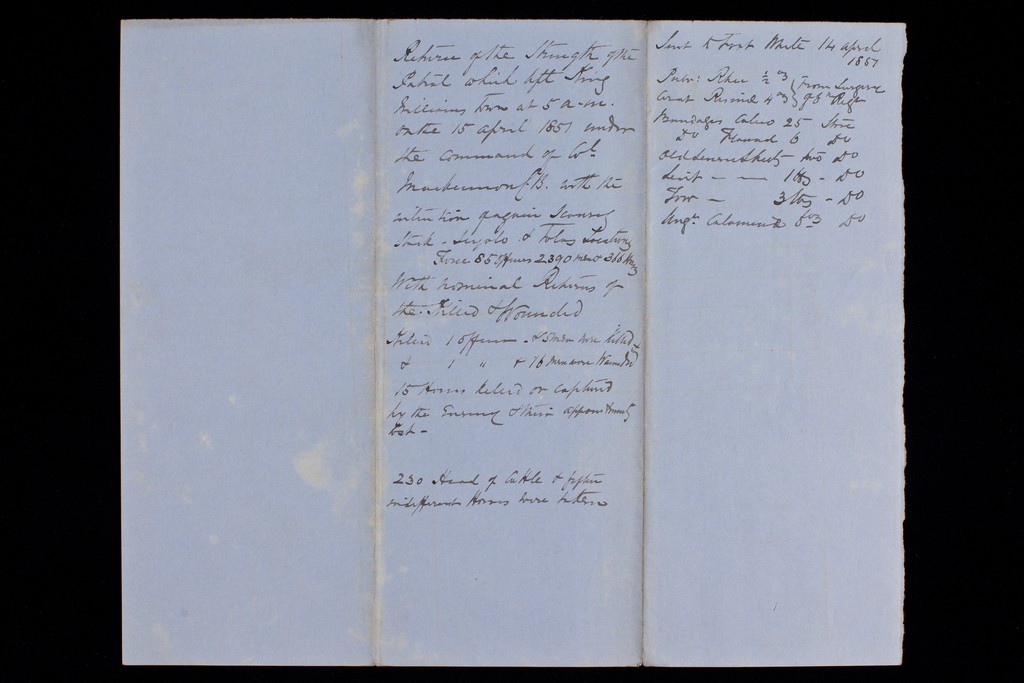 Return of the Strength of the
Patrol which left King
Williams Town at 5 a.m.
on the 15 April 1851 under
the command of Col.
Mackinnon C.B. with the
intention of again Scouring
Stock - & Tolas Locations
Force 85 Officers 2390 men & 316 Horses
With nominal Returns of
the Killed & Wounded
Killed 1 Officer - & 5 men were killed &
& 1 " & 16 men were Wounded
15 Horses killed or captured
by the Enemy & their appointments
lost -
230 Head of Cattle & fifteen
indifferent Horses were taken
Sent to Fort White 14 April
1851
Pulv: Rhei ½ oz } From Surgery
4 oz } of 6th Regt
Bandages Calico 25 Store
Do Flannel 6 Do
Old Linen Sheets two Do
Lint - - 1 lb - Do
Tow - 3 lbs - Do
Ungt. Calomine 8 oz Do